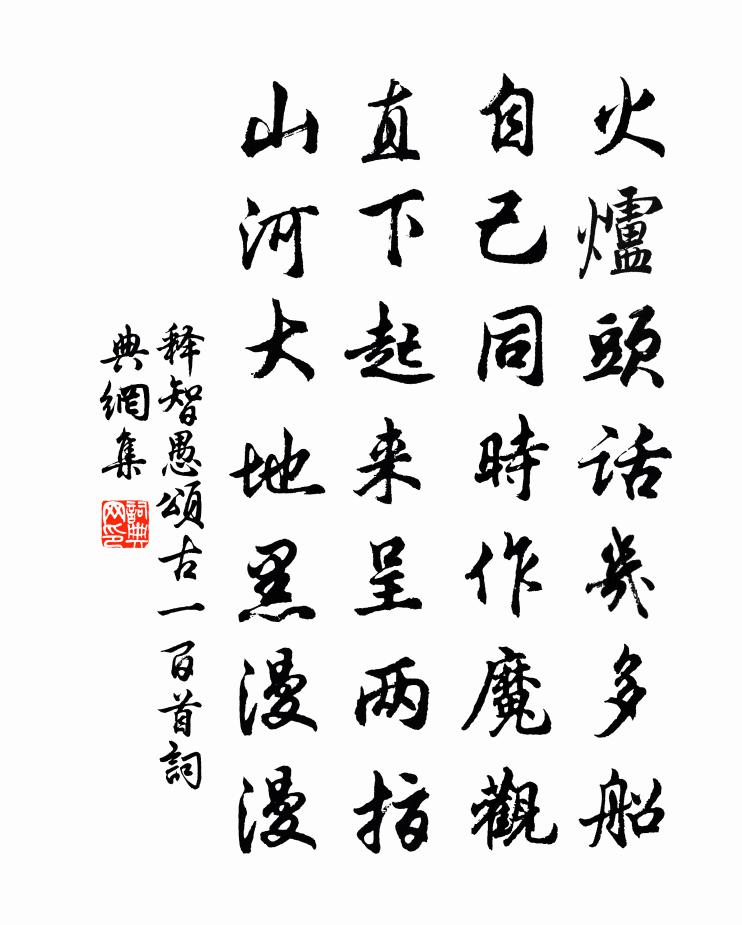 火爐頭話幾多船
自己同時作魔觀
直下起来呈两指
山河大地黑漫漫
释智愚頌古一百首詞
典網集
詞典网印